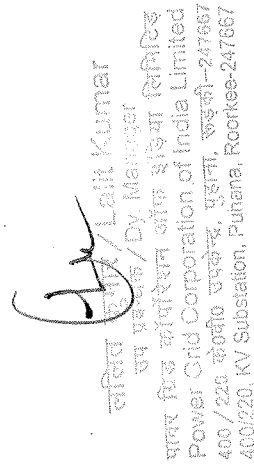 ललित कुमार / Lalit Kumar
उप प्रबन्धक / Dy. Manager
पावर ग्रिड कॉर्पोरेशन ऑफ इंडिया लिमिटेड
Power Grid Corporation of India Limited
400/220 के०वी० उपकेन्द्र, पुहाना, रूड़की-247667
400/220, KV Substation, Puhana, Roorkee-247667